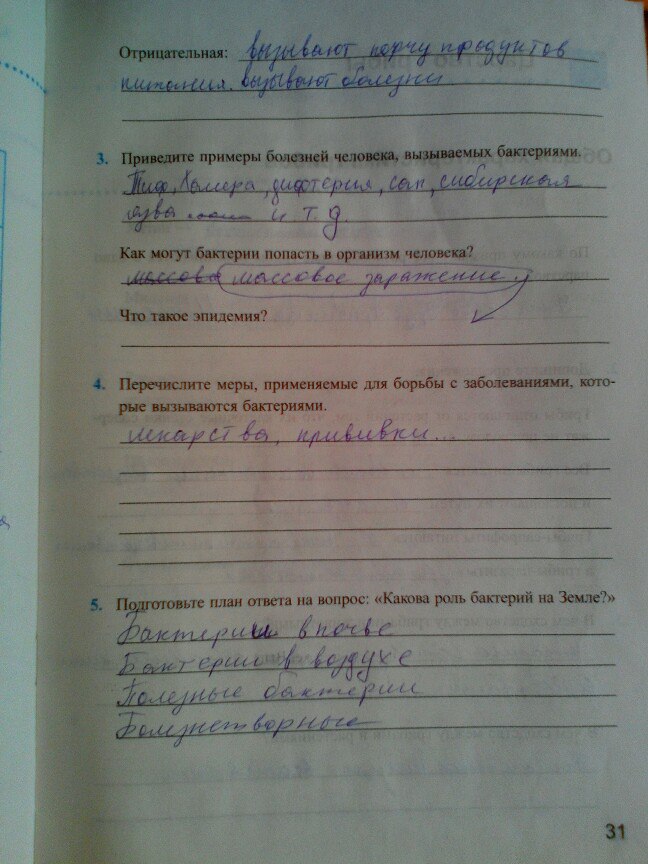 Отрицательная: вызывают порчу продуктов
питания. вызывают болезни
3. Приведите примеры болезней человека, вызываемых бактериями.
Тиф, Холера, дифтерия, сап, сибирская
язва и т. д.
Как могут бактерии попасть в организм человека?
массовое заражение.
Что такое эпидемия?
4. Перечислите меры, применяемые для борьбы с заболеваниями, кото-
рые вызываются бактериями.
лекарства, прививки.
5. Подготовьте план ответа на вопрос: «Какова роль бактерий на Земле?»
Бактерии в почве
Бактерии в воздухе
Полезные бактерии
Болезнетворные
31